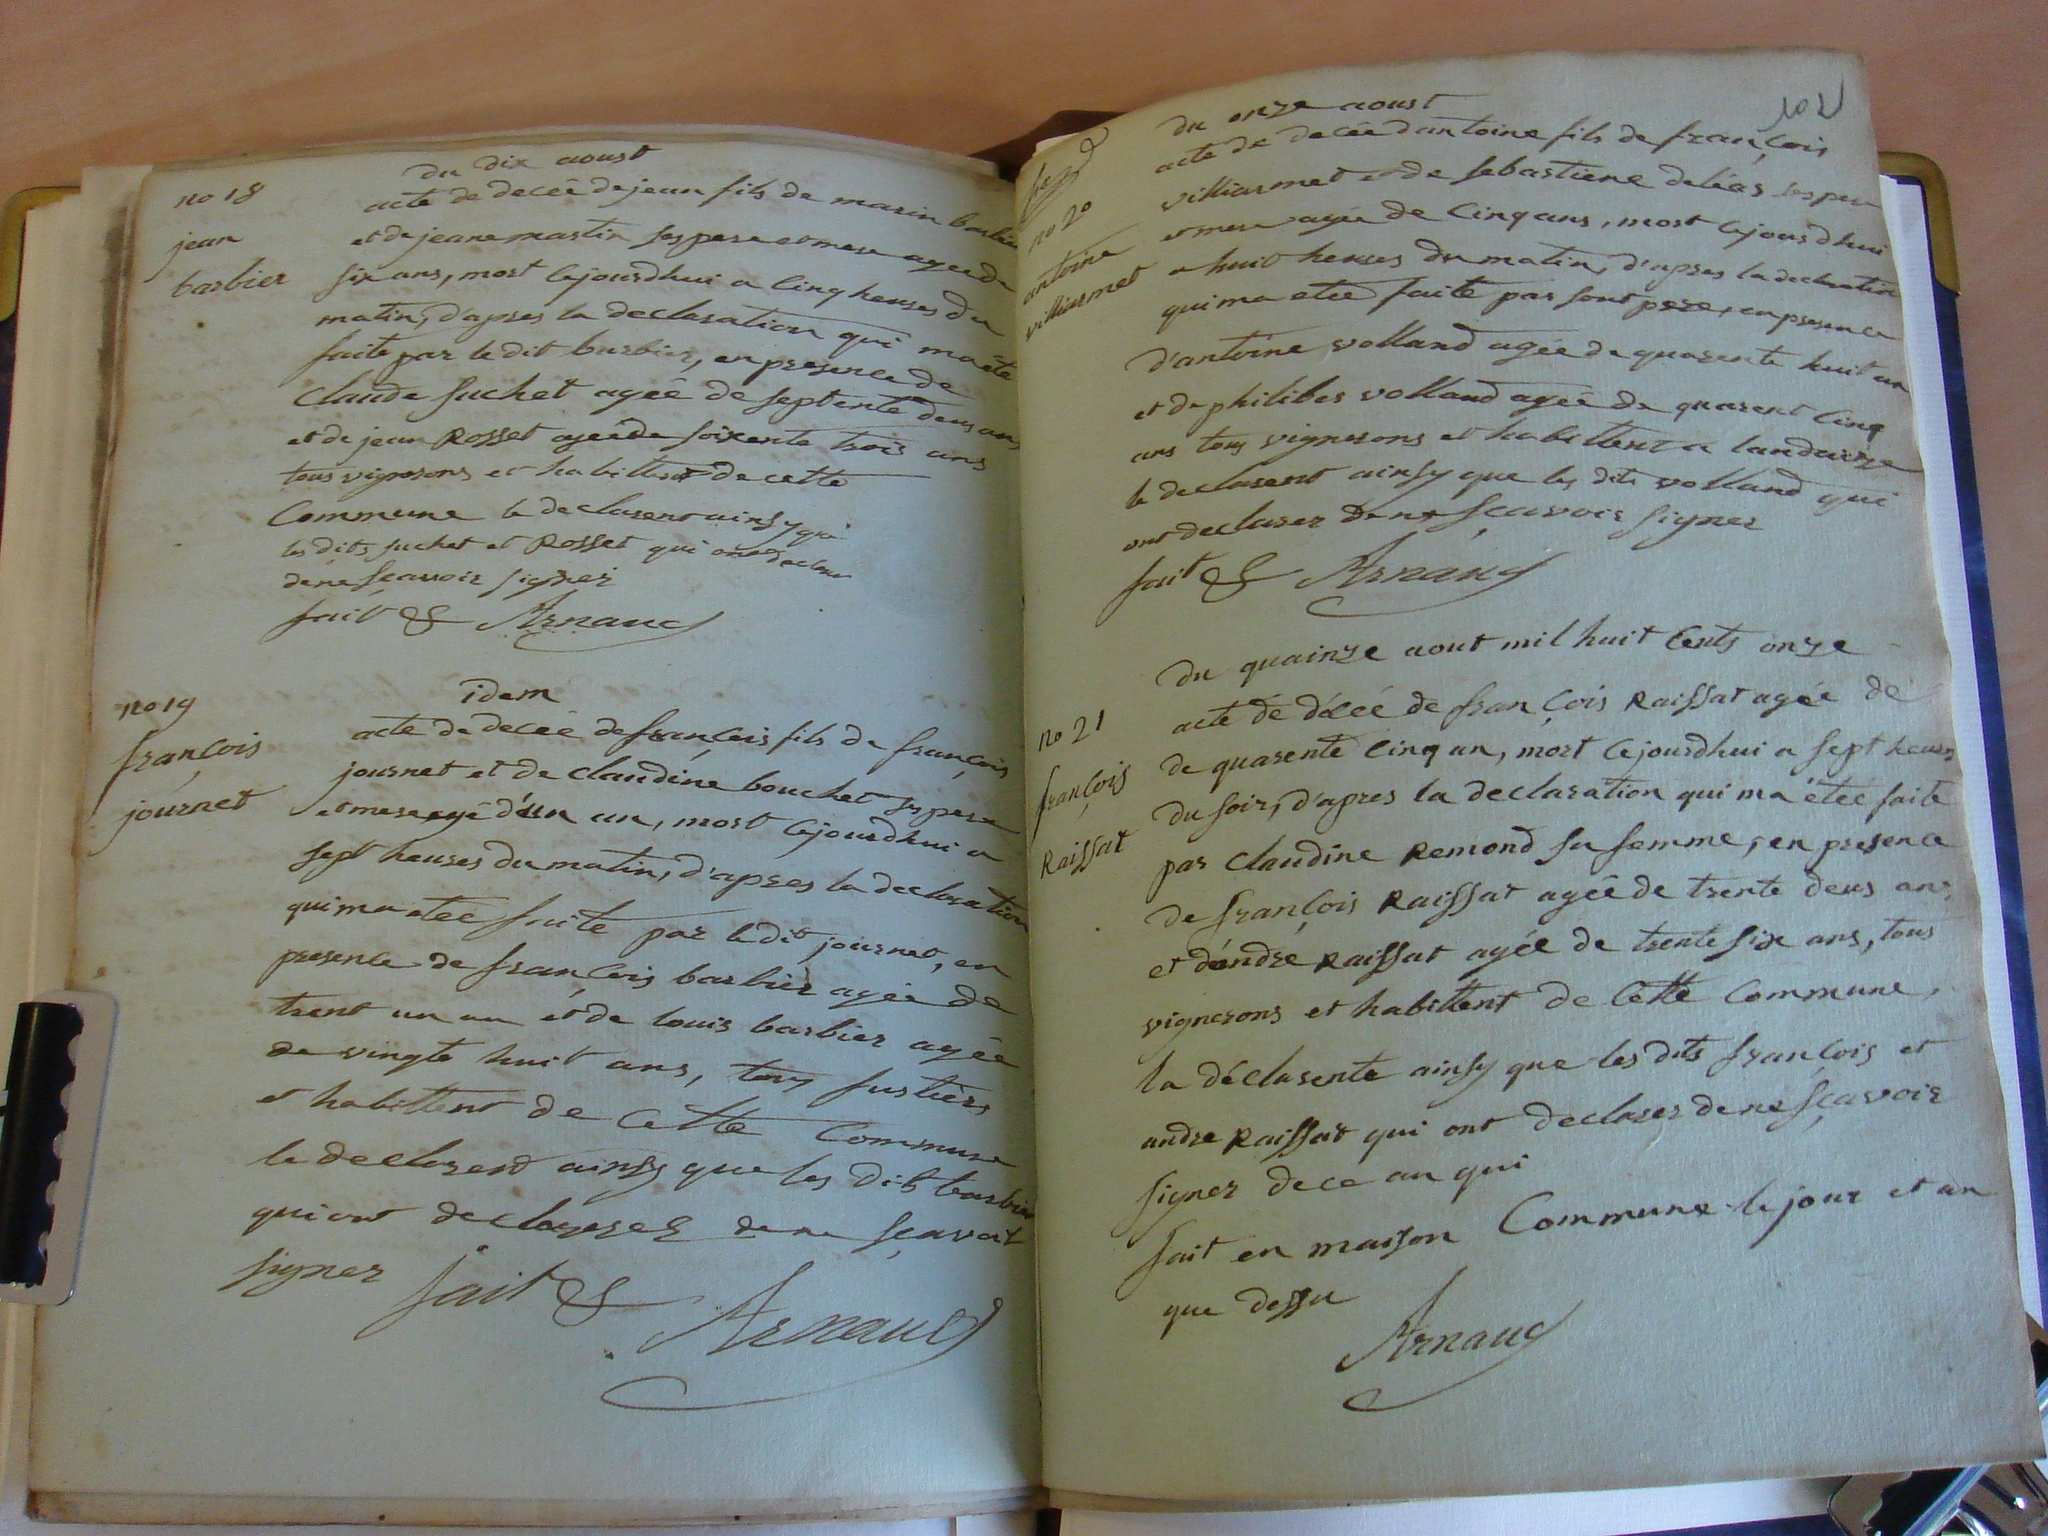 no 18
jean
barbier
du dix aoust
acte de decée de jean fils de marin barbier
et de jeane martin ses pere et mere agée de
six ans, mort cejourdhui a cinq heures du
matin, d'apres la declaration qui ma été
faite par le dit barbier, en presence de
claude suchet agée de septente deus ans
et de jean Rosset agée de soixente trois ans
tous vignerons et habittent de cette
commune le declarent ainsy que
les dits suchet et Rosset qui ont declare
de ne scavoir signer
fait & Arnaud
no 19
françois
journet
idem
acte de decée de françois fils de françois
journet et de claudine bouchet ses pere
et mere agé d'un an, mort cejourdhui a
sept heures du matin, d'apres la declaration
qui ma etée faite par le dit journet, en
presence de françois barbier agée de
trent un an et de louis barbier agée
de vingte huit ans, tous fustiers
et habittent de cette commune
le declarent ainsy que les dit barbier
qui ont declarer de ne sçavoir
signer fait &
Arnaud
102
no 20
antoine
villiarmet
du onze aoust
acte de decée d'antoine fils de françois
villiarmet et de sebastiene deléas ses pere
et mere agée de cinq ans, mort cejourdhui
a huit heures du matin, d'apres la declaration
qui ma etée faite par sont pere, en presence
d'antoine volland agée de quarente huit an
et de philiber volland agée de quarent cinq
ans tous vignerons et habittent a landaize
le declarent ainsy que les dits volland qui
ont declarer de ne sçavoir signer
fait & Arnaud
no 21
françois
Raissat
du quainze aout mil huit cents onze
acte de décée de françois Raissat agée de
de quarente cinq an, mort cejourdhui a sept heures
du soir, d'apres la declaration qui ma étée faite
par claudine Remond sa femme, en presence
de françois Raissat agée de trente deus ans,
et d'andré Raissat agée de trente six ans, tous
vignerons et habittent de cette commune,
la déclarente ainsy que les dits françois et
andre Raissat qui ont declarer de ne sçavoir
signer de ce an qui
fait en maison commune le jour et an
que dessu
Arnaud